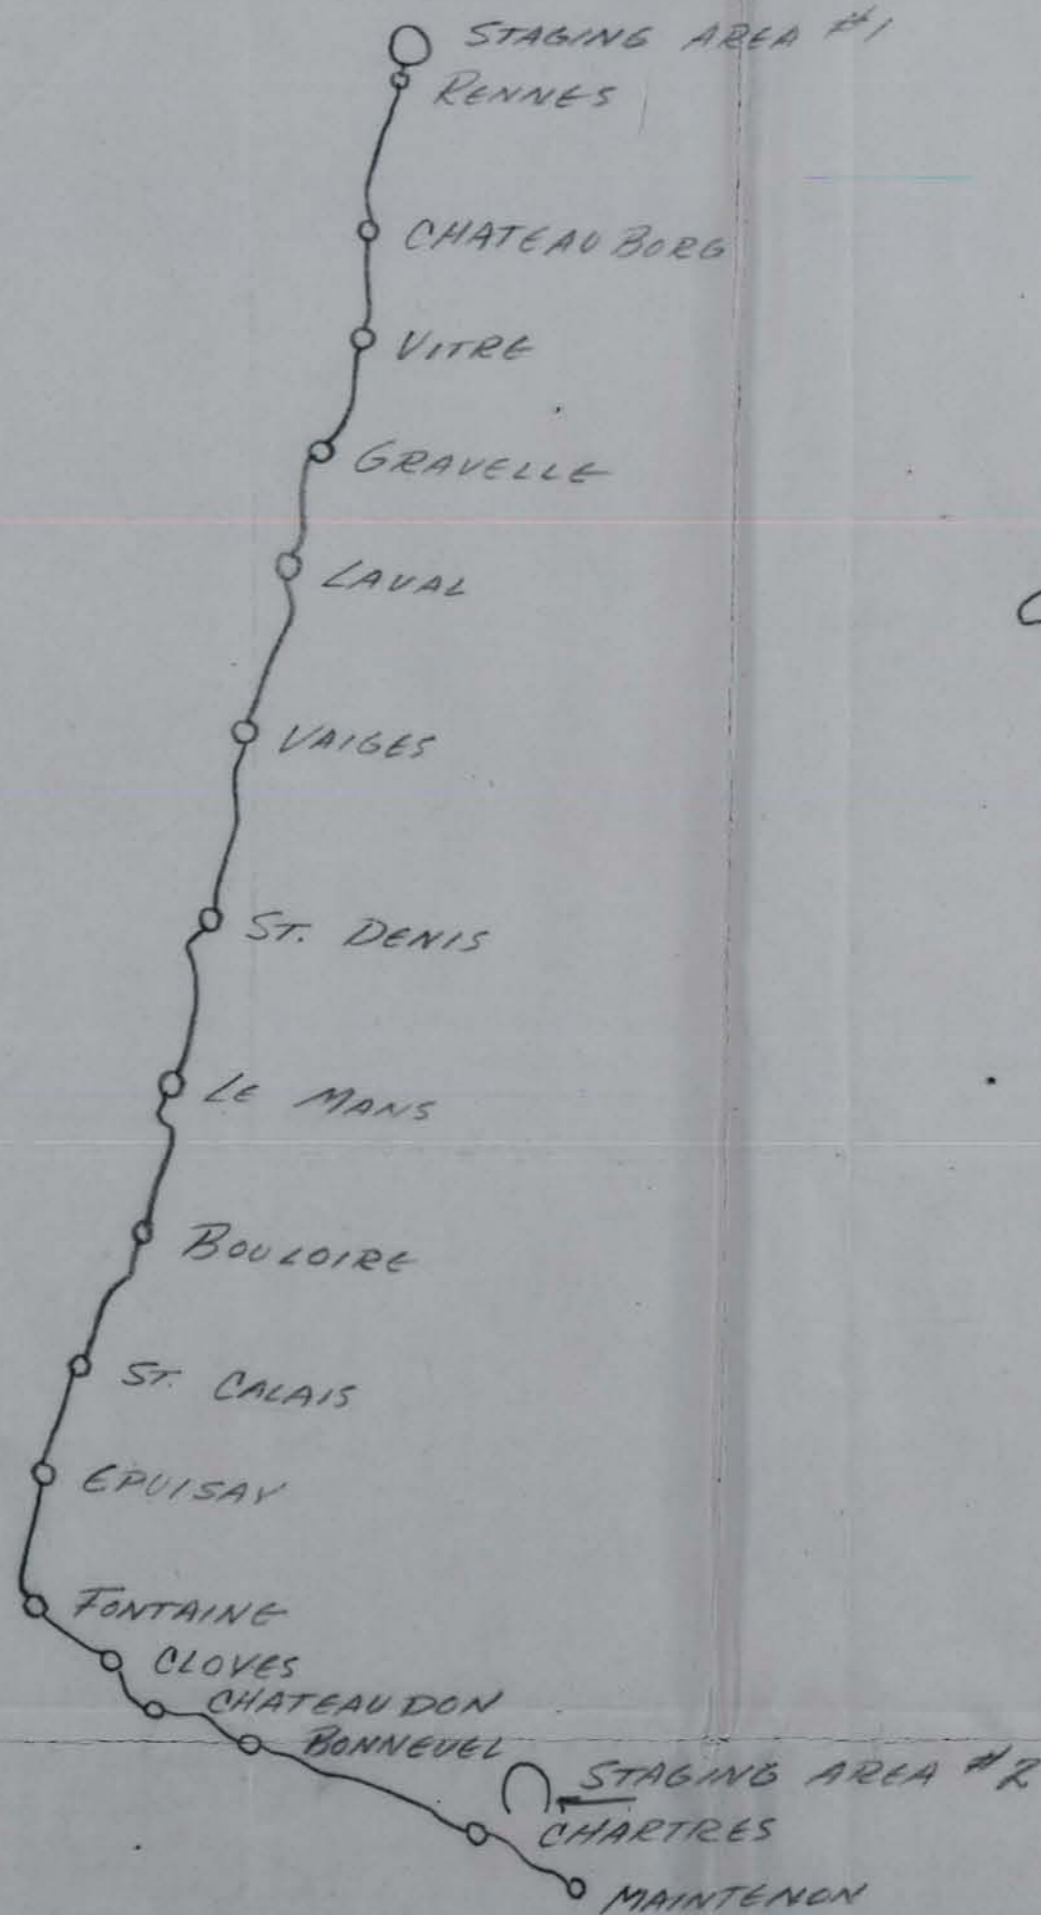 STAGING AREA #1
RENNES
CHATEAU BORG
VITRE
GRAVELLE
LAVAL
VAIGES
ST. DENIS
LE MANS
BOULOIRE
ST. CALAIS
EPUISAY
FONTAINE
CLOVES
CHATEAU DON
BONNEVEL
STAGING AREA #2
CHARTRES
MAINTENON